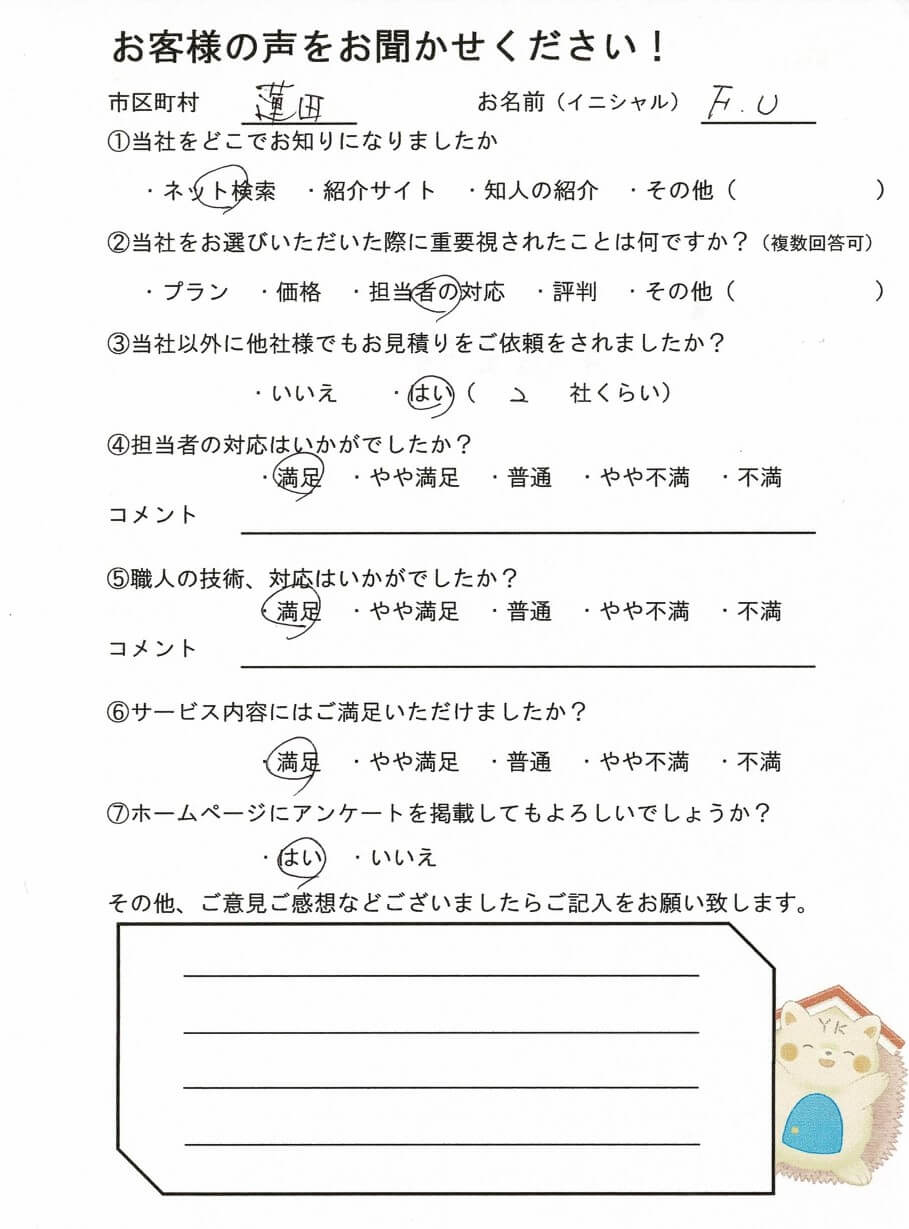 お客様の声をお聞かせください!
市区町村 蓮田 お名前(イニシャル) F.U
①当社をどこでお知りになりましたか
・ネット検索 ・紹介サイト ・知人の紹介 ・その他( )
②当社をお選びいただいた際に重要視されたことは何ですか?(複数回答可)
・プラン ・価格 ・担当者の対応 ・評判 ・その他( )
③当社以外に他社様でもお見積りをご依頼をされましたか?
・いいえ ・はい( 2 社くらい)
④担当者の対応はいかがでしたか?
・満足 ・やや満足 ・普通 ・やや不満 ・不満
コメント
⑤職人の技術、対応はいかがでしたか?
・満足 ・やや満足 ・普通 ・やや不満 ・不満
コメント
⑥サービス内容にはご満足いただけましたか?
・満足 ・やや満足 ・普通 ・やや不満 ・不満
⑦ホームページにアンケートを掲載してもよろしいでしょうか?
・はい ・いいえ
その他、ご意見ご感想などございましたらご記入をお願い致します。
YK